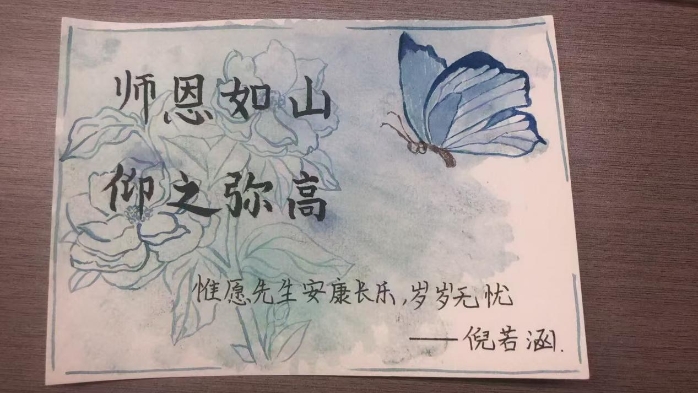 师恩如山
仰之弥高
惟愿先生安康长乐,岁岁无忧
——倪若涵.